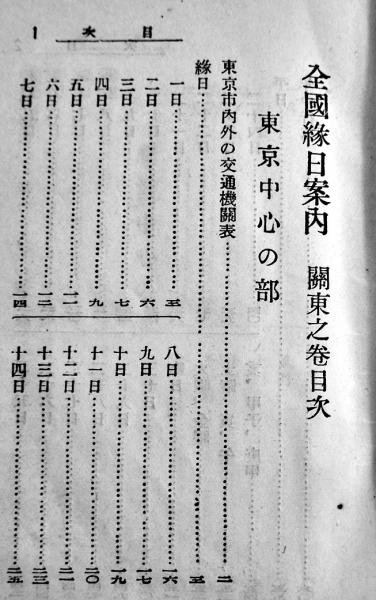 目次 1
全國緣日案內 關東之卷目次
東京中心の部
東京市內外の交通機關表……二
緣日……五
一日……五
二日……六
三日……七
四日……九
五日……一一
六日……一二
七日……一四
八日……一六
九日……一七
十日……一九
十一日……二〇
十二日……二一
十三日……二三
十四日……二五